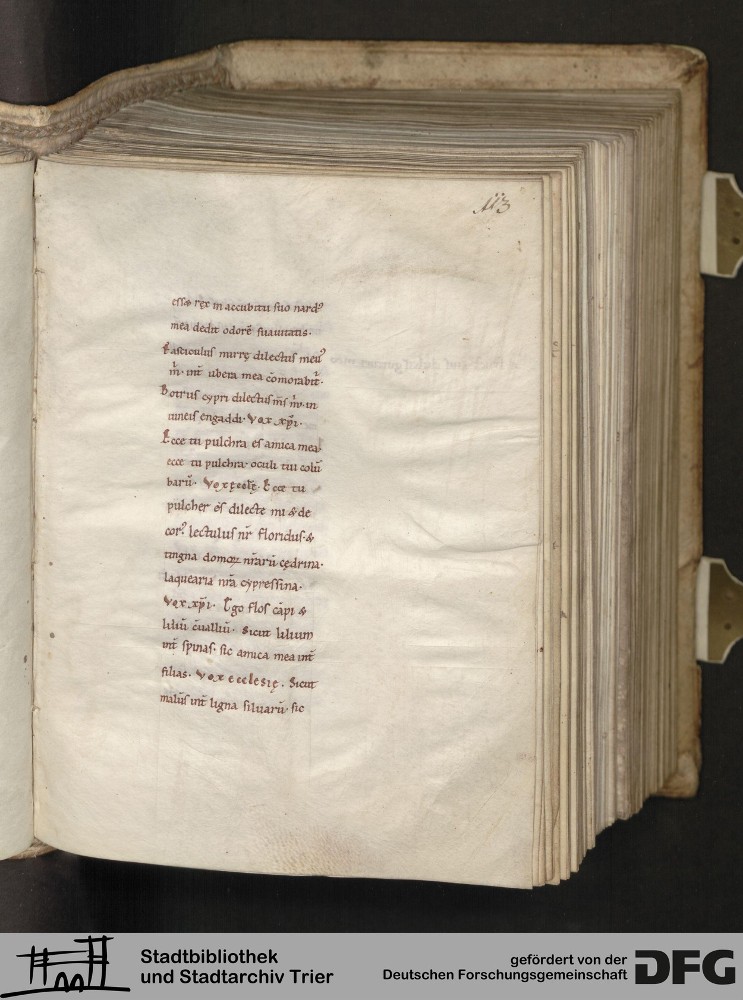 113
ess& rex in accubitu suo nardꝰ
mea dedit odorē suauitatis.
Fasciculus mirrę dilectus meuꝰ
m̄. int̄ ubera mea cōmorabit̄.
Botrus cypri dilectus m̄s m̄. in
uineis engaddi. Vox xp̄i.
Ecce tu pulchra es amica mea.
ecce tu pulchra. oculi tui colū
barū. Vox ęcclę. Ecce tu
pulcher es dilecte mi & de
corꝰ. lectulus nr̄ floridus. &
tingna domoꝝ nr̄arū cędrina.
laquearia nr̄a cypressina.
Vox xp̄i. Ego flos cāpi &
liliū cūalliū. Sicut lilium
int̄ spinas. sic amica mea int̄
filias. Vox ecclesię. Sicut
malūs int̄ ligna siluarū. sic
Stadtbibliothek
und Stadtarchiv Trier
gefördert von der
Deutschen Forschungsgemeinschaft
DFG